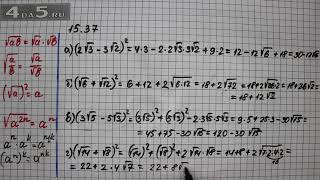 4 DA 5.RU
15.37
√ab = √a · √b
√a/√b = √a/√b
(√a)² = a
√a²ⁿ = aⁿ
aⁿ · aᵏ = aⁿ⁺ᵏ
(aⁿ)ᵏ = aⁿᵏ
а) (2√3 - 3√2)² = 4·3 - 2·2√3·3√2 + 9·2 = 12 - 12√6 + 18 = 30 - 12√6
б) (√6 + √12)² = 6 + 12 + 2√6·12 = 18 + 2√72 = 18 + 2√36·2 = 18 + 12√2
в) (3√5 - 5√3)² = (3√5)² + (5√3)² - 2·3√5·5√3 = 9·5 + 25·3 - 30√15 =
= 45 + 75 - 30√15 = 120 - 30√15
г) (√14 + √8)² = (√14)² + (√8)² + 2√14·√8 = 14 + 8 + 2√7·2·4·2 =
16
= 22 + 2·4√7 = 22 + 8√